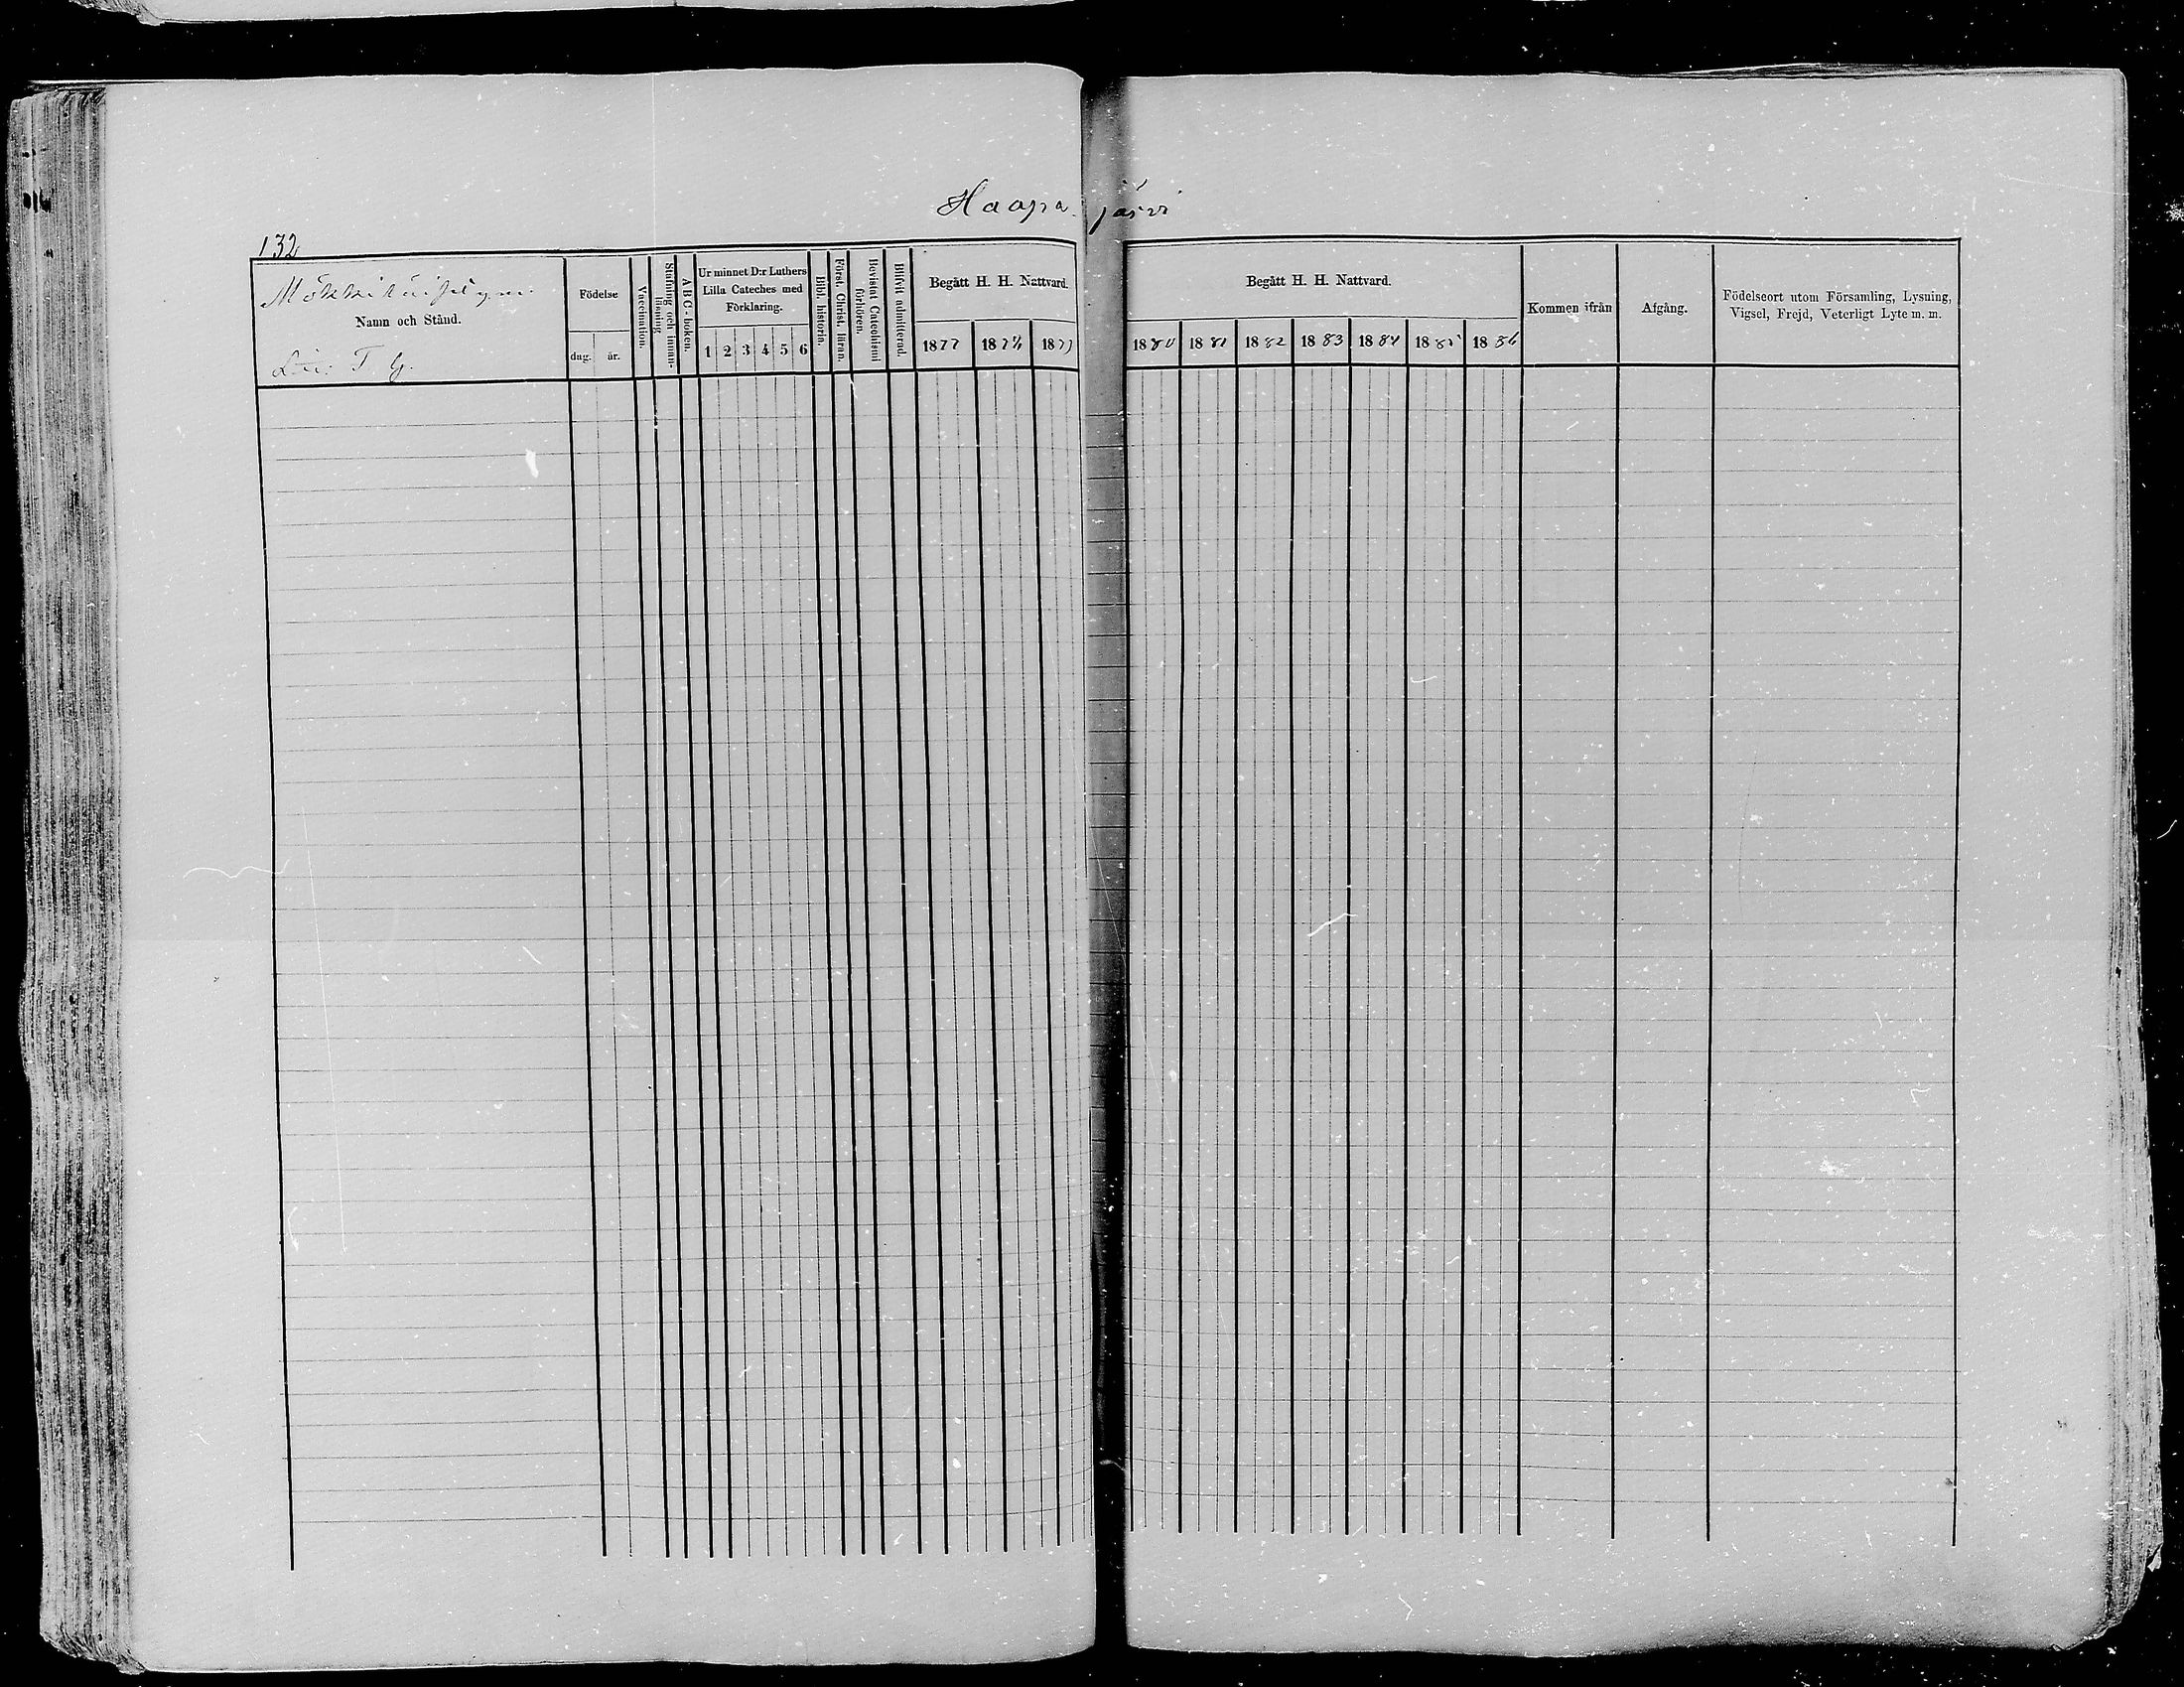 Haapajärvi
132
Namn och Stånd.
Litt. T. G.
Födelse
dag. år.
Vaccination.
Stafning och innan-
läsning
A B C - boken.
Ur minnet D:r Luthers
Lilla Cateches med
Förklaring.
1 2 3 4 5 6
Bibl. historia.
Först. Christ. läran.
Bevistat Catechismi
förhören.
Blifvit admitterad.
Begått H. H. Nattvard.
1877 1878 1879
Begått H. H. Nattvard.
1880 1881 1882 1883 1884 1885 1886
Kommen ifrån
Afgång.
Födelseort utom Församling, Lysning,
Vigsel, Frejd, Veterligt Lyte m. m.